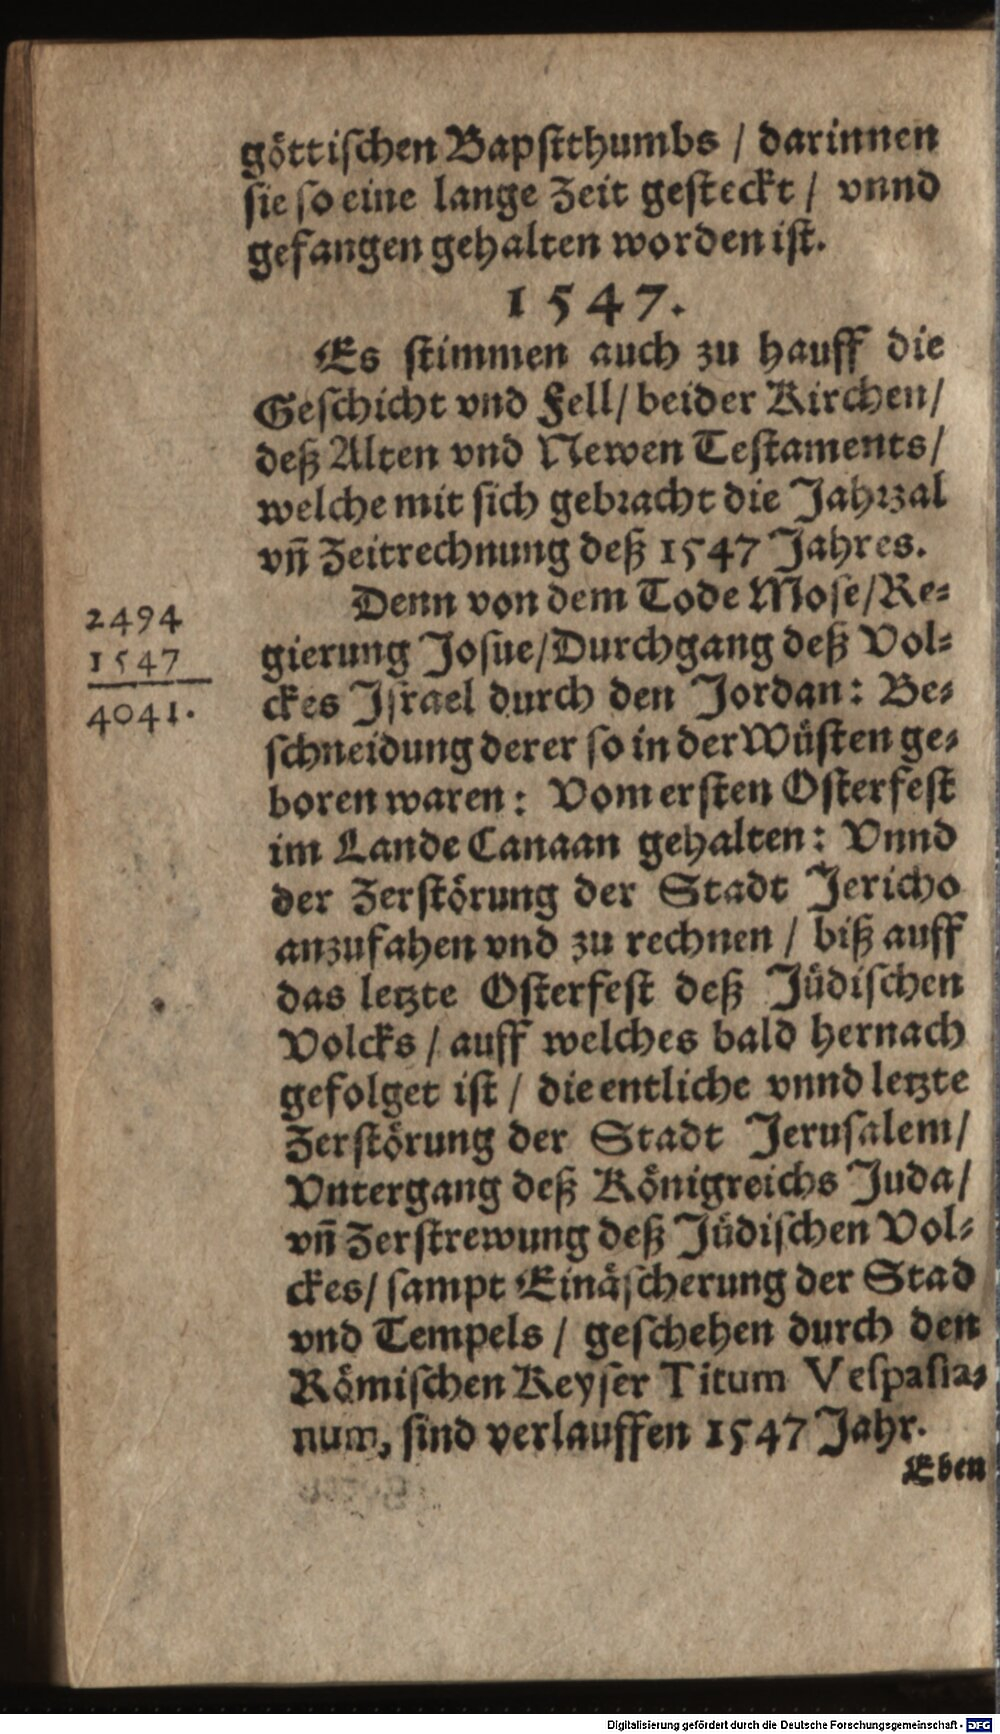 göttischen Bapstthumbs / darinnen
sie so eine lange Zeit gesteckt / vnnd
gefangen gehalten worden ist.
1547.
Es stimmen auch zu hauff die
Geschicht vnd Fell / beider Kirchen /
deß Alten vnd Newen Testaments /
welche mit sich gebracht die Jahrzal
vñ Zeitrechnung deß 1547 Jahres.
2494
1547
4041.
Denn von dem Tode Mose / Re-
gierung Josue / Durchgang deß Vol-
ckes Israel durch den Jordan: Be-
schneidung derer so in der Wüsten ge-
boren waren: Vom ersten Osterfest
im Lande Canaan gehalten: Vnnd
der Zerstörung der Stadt Jericho
anzufahen vnd zu rechnen / biß auff
das letzte Osterfest deß Jüdischen
Volcks / auff welches bald hernach
gefolget ist / die entliche vnnd letzte
Zerstörung der Stadt Jerusalem /
Vntergang deß Königreichs Juda /
vñ Zerstrewung deß Jüdischen Vol-
ckes / sampt Einäscherung der Stad
vnd Tempels / geschehen durch den
Römischen Keyser Titum Vespasia-
num, sind verlauffen 1547 Jahr.
Eben
Digitalisierung gefördert durch die Deutsche Forschungsgemeinschaft - DFG